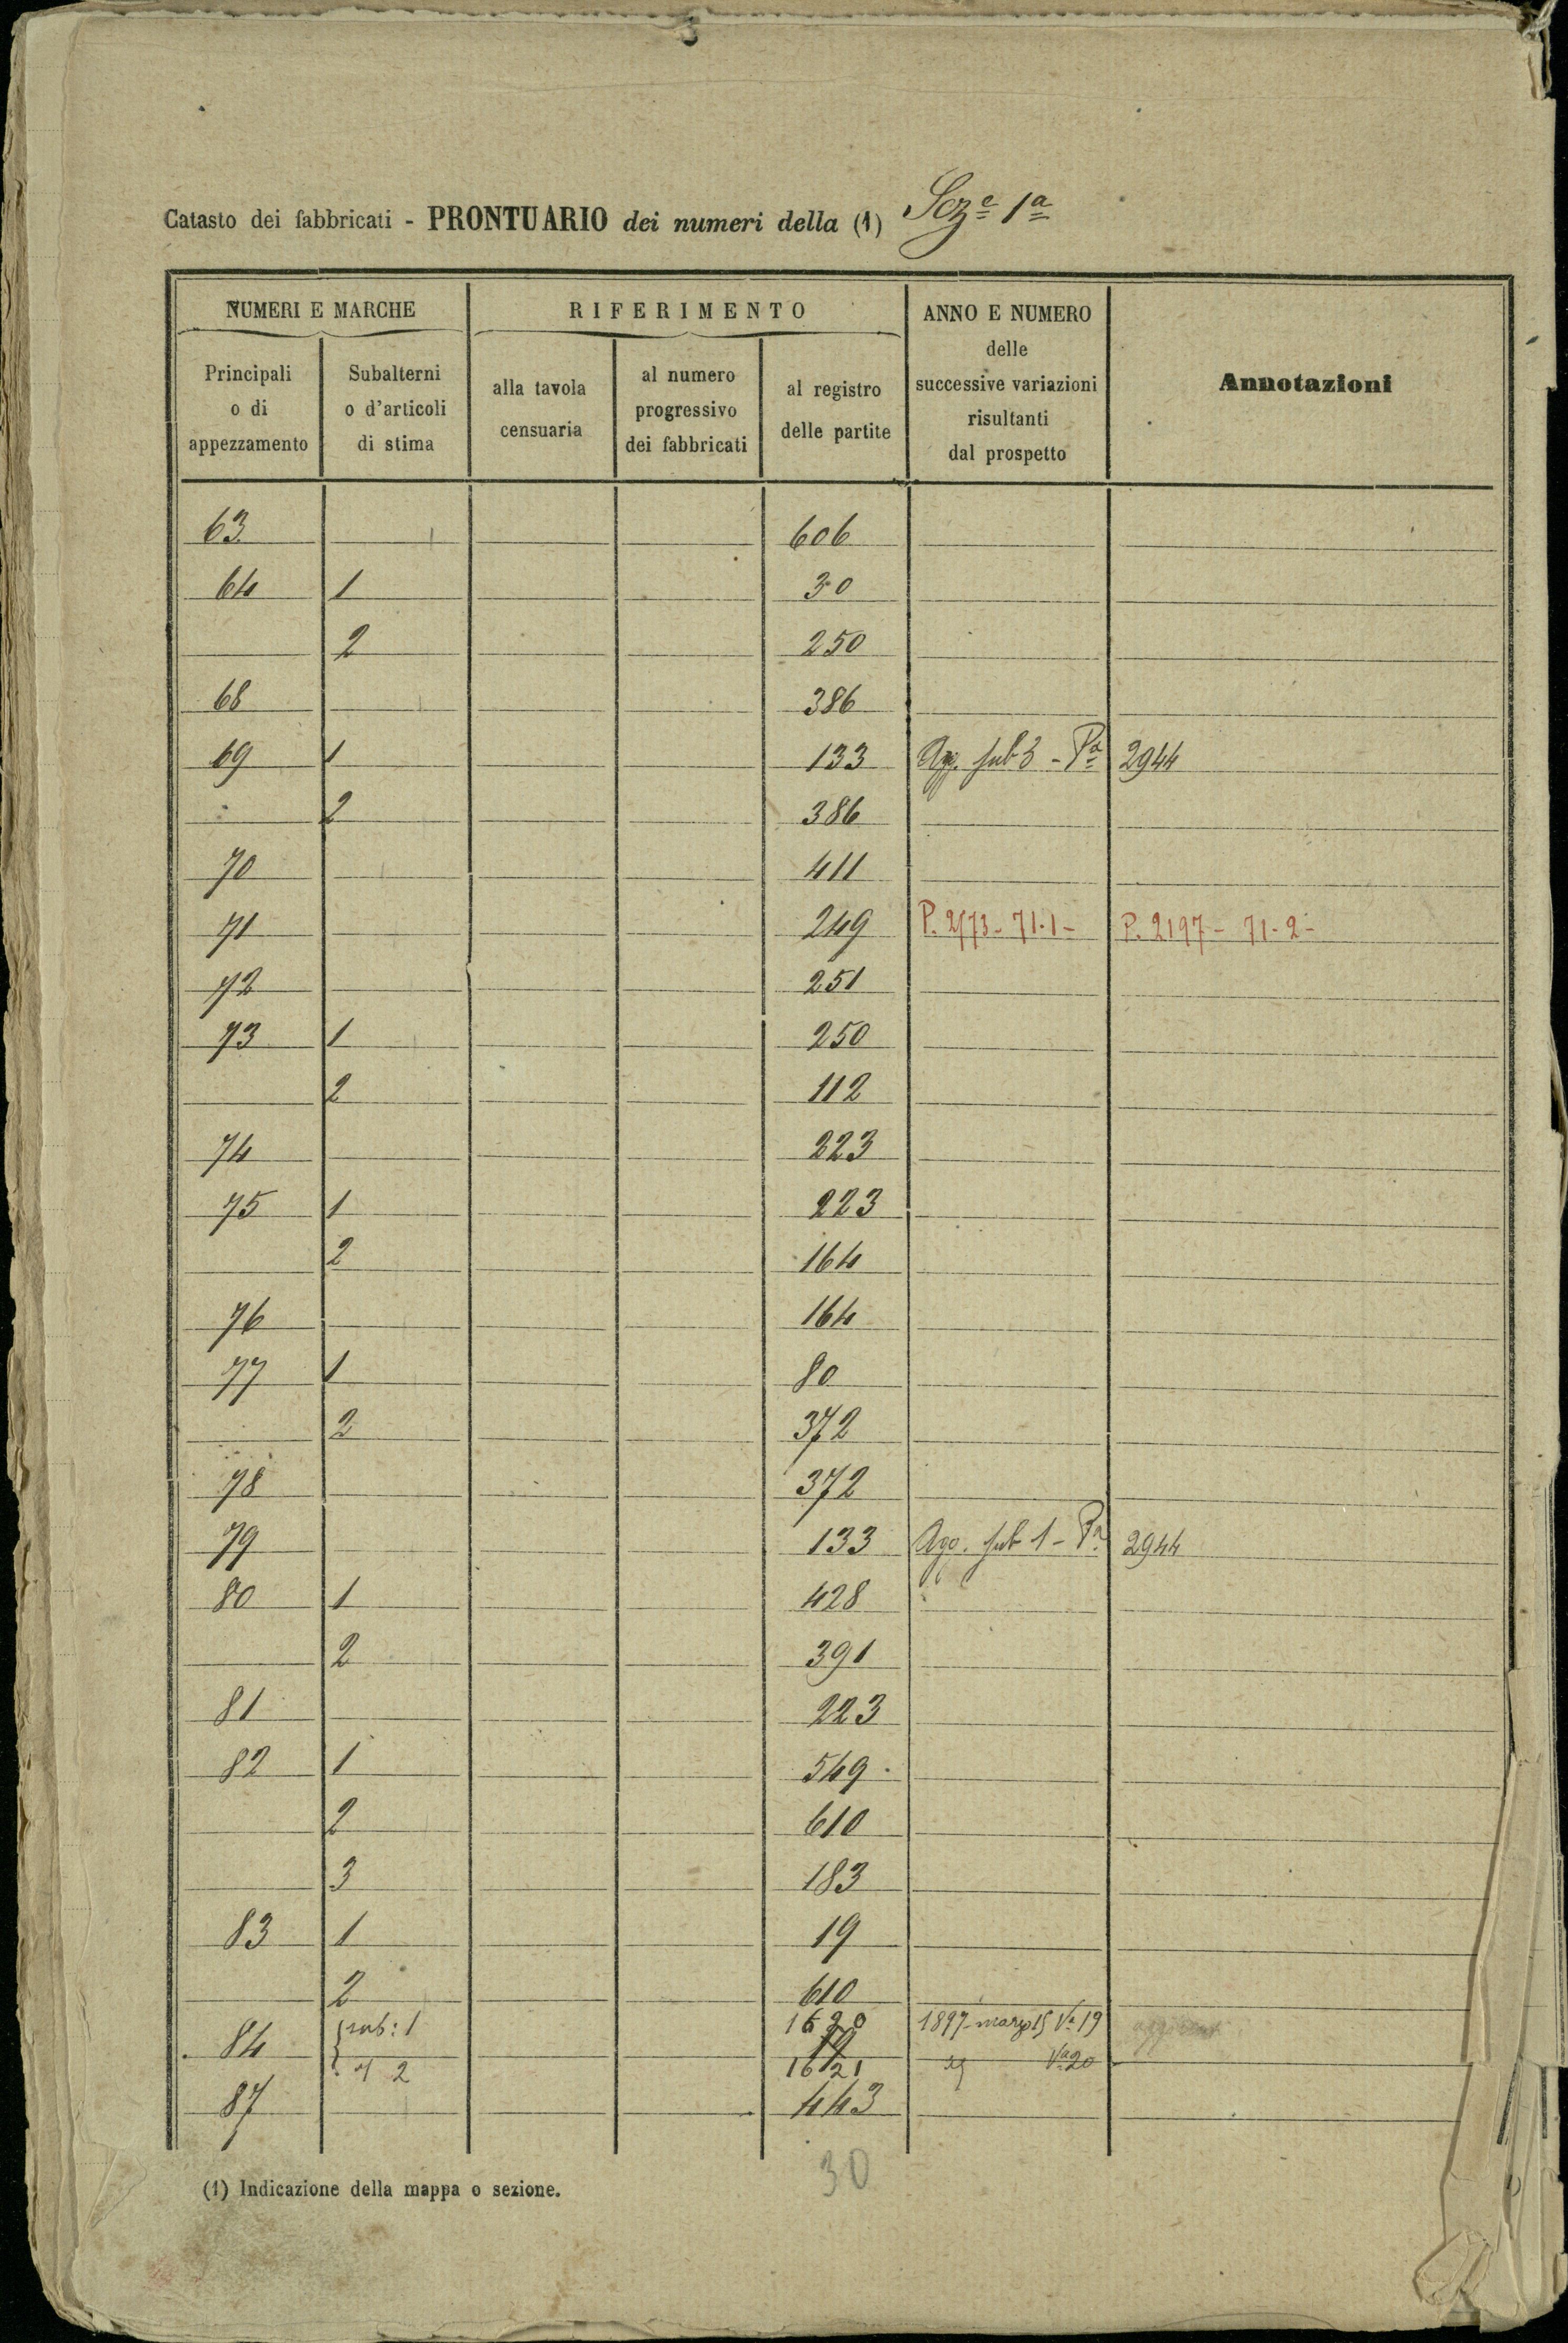 Catasto dei fabbricati - PRONTUARIO dei numeri della (1) Sez.e 1a
NUMERI E MARCHE
RIFERIMENTO
ANNO E NUMERO
delle
successive variazioni
risultanti
dal prospetto
Annotazioni
Principali
o di
appezzamento
Subalterni
o d'articoli
di stima
alla tavola
censuaria
al numero
progressivo
dei fabbricati
al registro
delle partite
63 606
64 1 30
2 250
68 386
69 1 133 Agg. sub 3 - Pa 2944
2 386
70 411
71 249 P. 2173 - 71.1 - P. 2197 - 71-2-
72 251
73 1 250
2 112
74 223
75 1 223
2 164
76 164
77 1 80
2 372
78 372
79 133 Agg. sub 1 - Pa 2944
80 1 428
2 391
81 223
82 1 549
2 610
3 183
83 1 19
2 610
sub: 1 1620 1897 marzo 15 Va 19
84 19
2 1621 Va 20
87 443
30
(1) Indicazione della mappa o sezione.